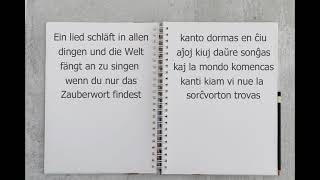 Ein lied schläft in allen
dingen und die Welt
fängt an zu singen
wenn du nur das
Zauberwort findest
kanto dormas en ĉiu
aĵoj kiuj daŭre sonĝas
kaj la mondo komencas
kanti kiam vi nue la
sorĉvorton trovas